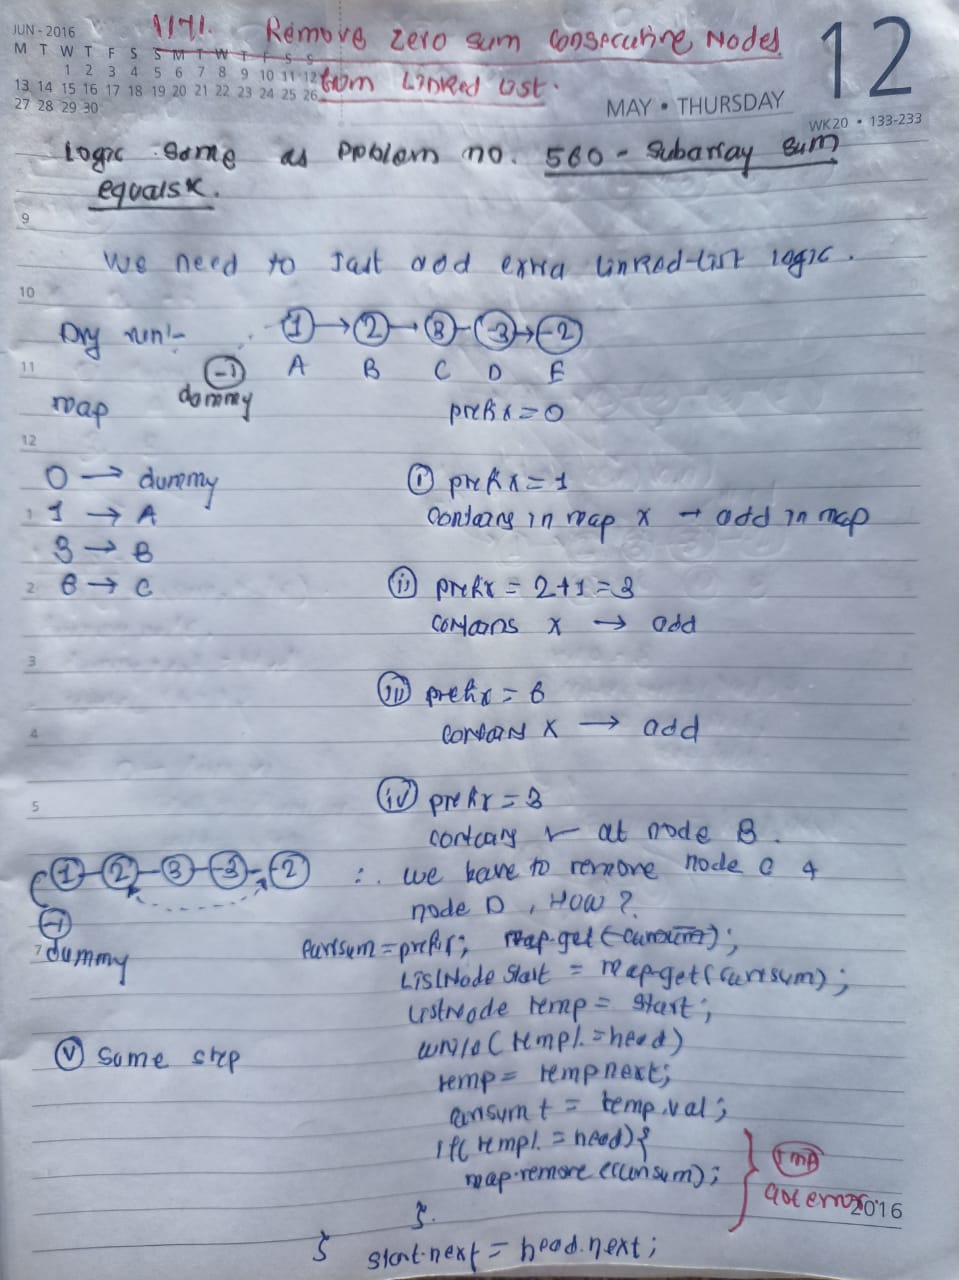 JUN - 2016
M T W T F S S M T W T F S S
1 2 3 4 5 6 7 8 9 10 11 12
13 14 15 16 17 18 19 20 21 22 23 24 25 26
27 28 29 30
1171. Remove zero sum consecutive Nodes
from Linked List.
MAY • THURSDAY
12
WK20 • 133-233
Logic same as problem no. 560 - Subarray sum
equals K.
9
We need to just add extra linked-list logic.
10
Dry run:- 1 → 2 → 3 - -3 → -2
11
A B C D E
-1
dummy
map
prefix = 0
12
0 → dummy
i prefix = 1
1
1 → A
contains in map x → add in map
3 → B
2
6 → C
ii prefix = 2+1 = 3
contains x → add
3
iii prefix = 6
4
contains x → add
5
iv prefix = 3
contains ✓ at node B.
1 - 2 - 3 - -3 - -2
∴ we have to remove node C &
node D, How?
-1
7
dummy
cursum = prefix; map.get(-cursum);
ListNode start = map.get(cursum);
ListNode temp = start;
v Same step
while(temp != head)
temp = temp.next;
cursum += temp.val;
if(temp != head){
map.remove(cursum);
}
Imp
2016
} start.next = head.next;